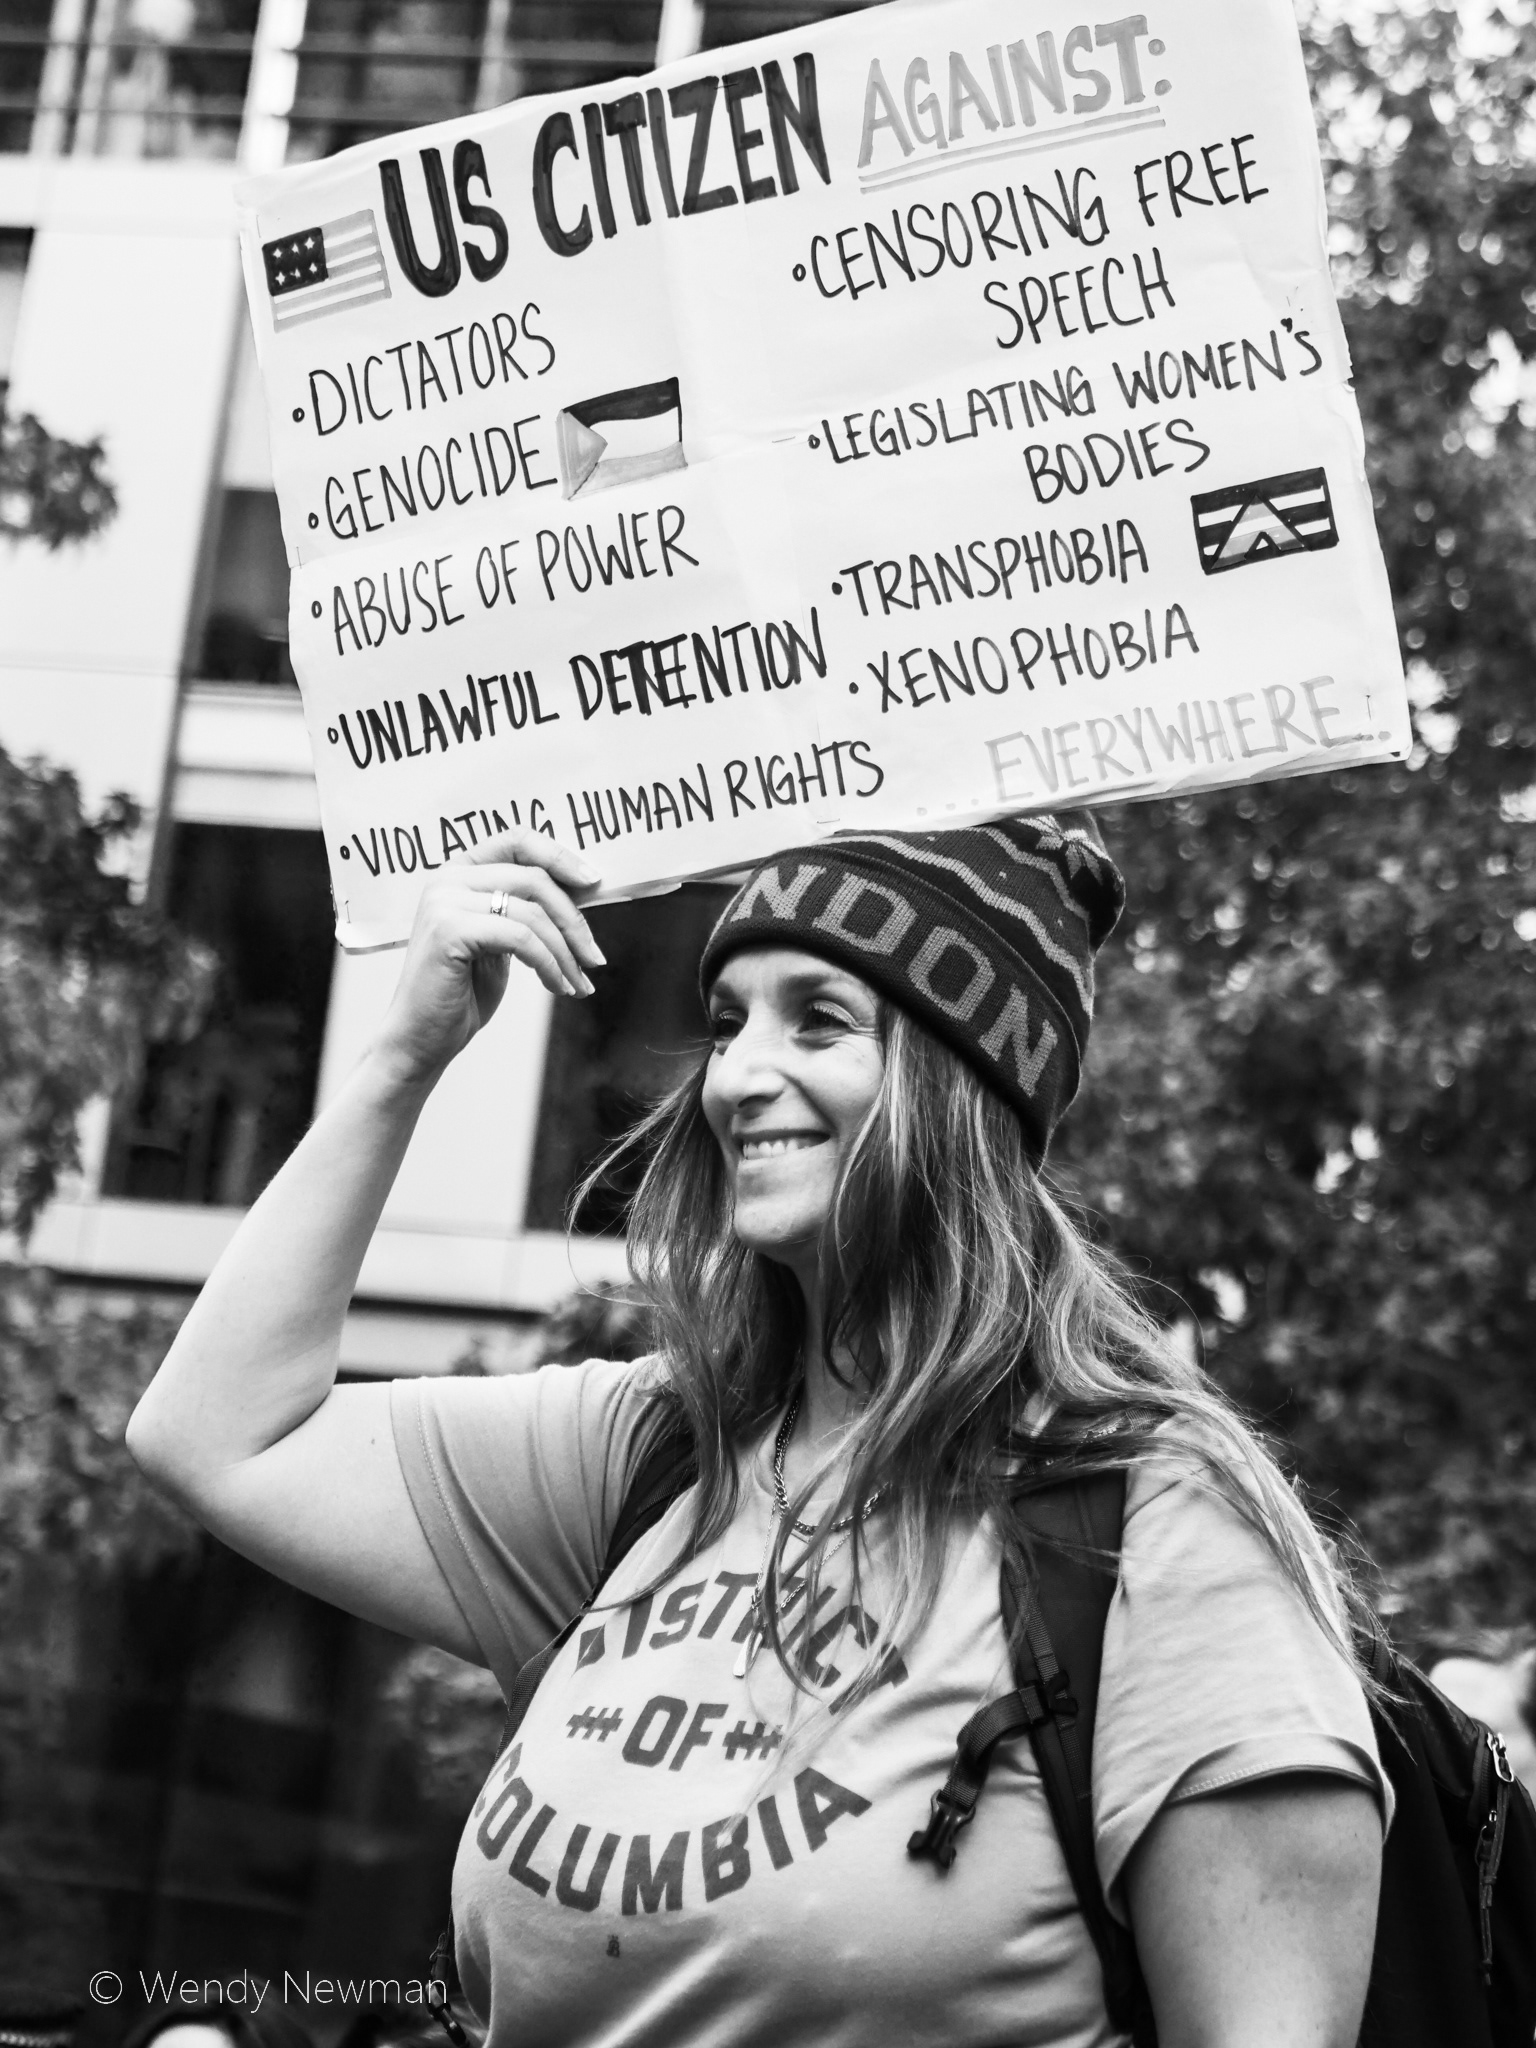 US CITIZEN AGAINST:
• DICTATORS
• GENOCIDE
• ABUSE OF POWER
• UNLAWFUL DETENTION
• VIOLATING HUMAN RIGHTS
• CENSORING FREE
SPEECH
• LEGISLATING WOMEN'S
BODIES
• TRANSPHOBIA
• XENOPHOBIA
...EVERYWHERE...
NDON
DISTRICT
OF
COLUMBIA
© Wendy Newman